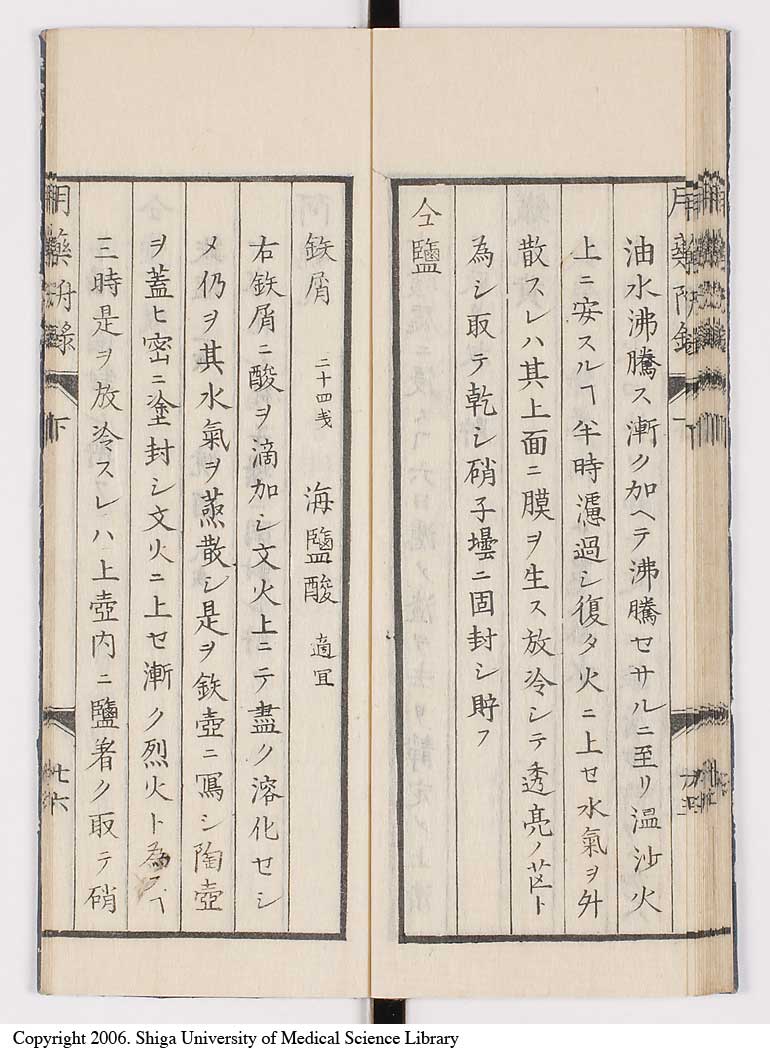 油水沸騰ス漸ク加ヘテ沸騰セサルニ至リ温沙火
上ニ安スルヿ半時濾過シ復タ火ニ上セ水氣ヲ外
散スレハ其上面ニ膜ヲ生ス放冷シテ透亮ノ芒ト
為シ取テ乾シ硝子壜ニ固封シ貯フ
仝鹽
鉄屑 二十四戋 海鹽酸 適冝
右鉄屑ニ酸ヲ滴加シ文火上ニテ盡ク溶化セシ
メ仍ヲ其水氣ヲ蒸散シ是ヲ鉄壺ニ冩シ陶壺
ヲ蓋ヒ密ニ塗封シ文火ニ上セ漸ク烈火ト為スヿ
三時是ヲ放冷スレハ上壺内ニ鹽著ク取テ硝
用藥附録
下
七六
Copyright 2006. Shiga University of Medical Science Library